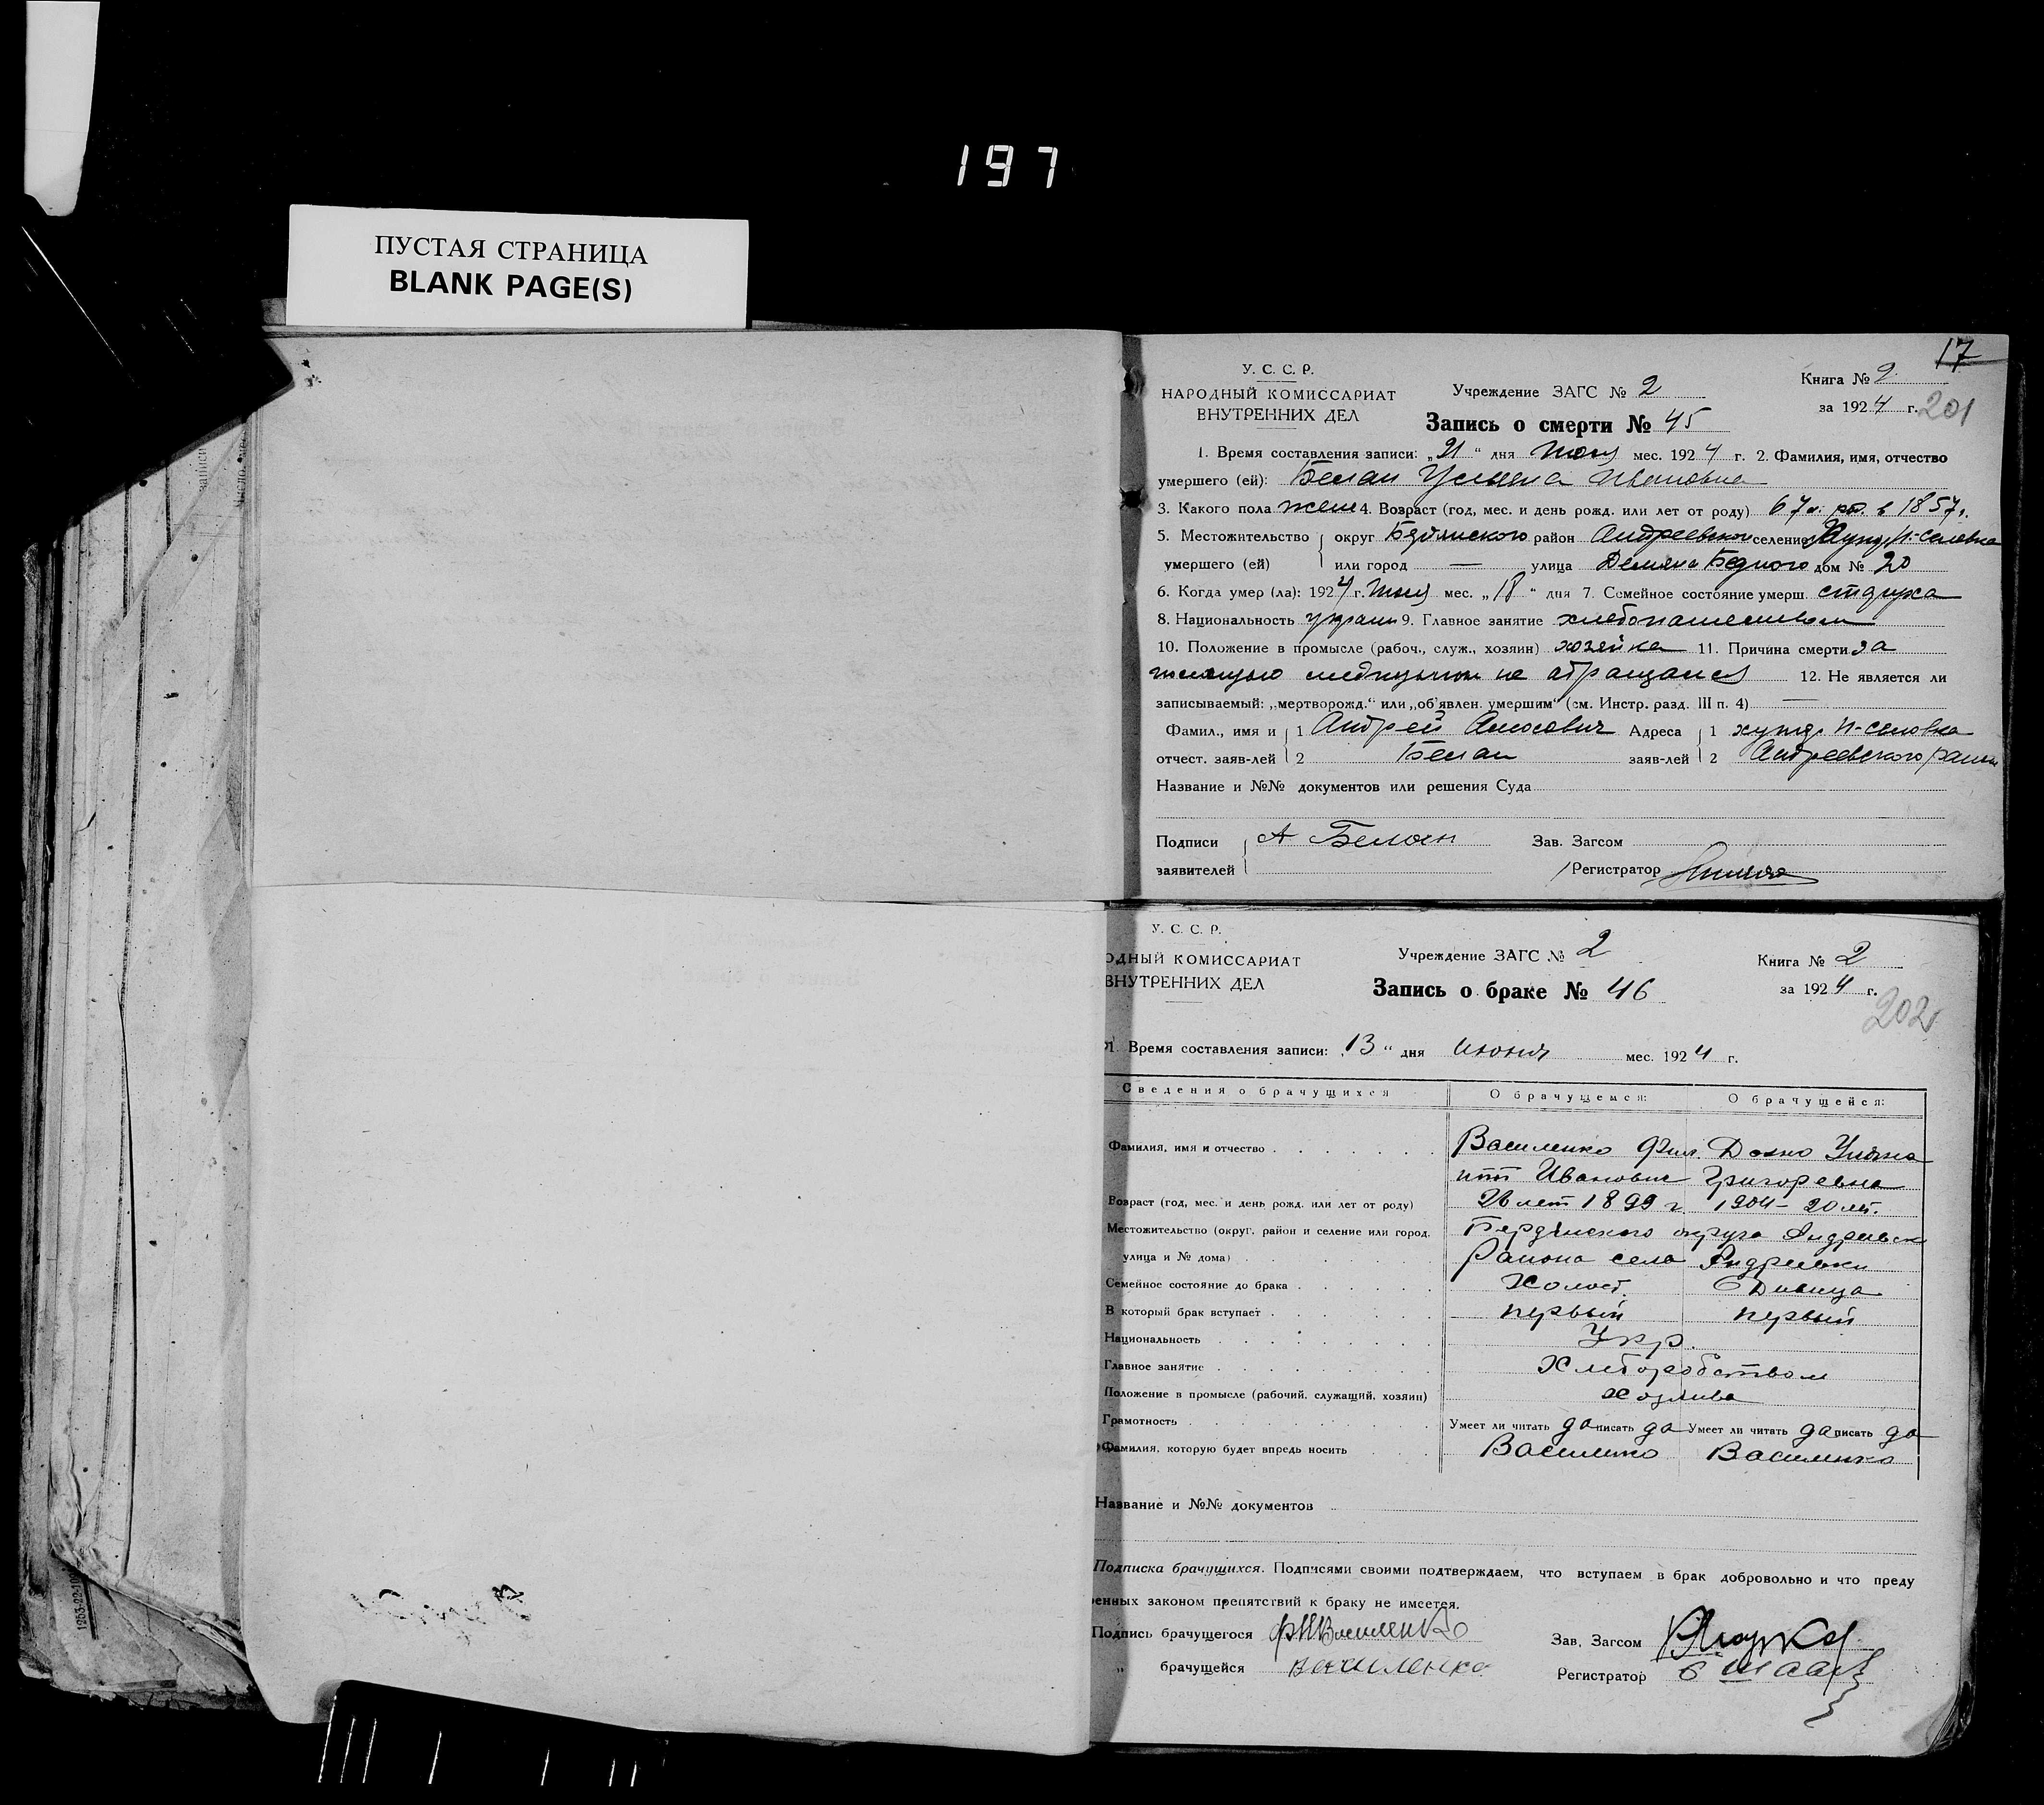 197
ПУСТАЯ СТРАНИЦА
BLANK PAGE(S)
17
У. С. С. Р.
НАРОДНЫЙ КОМИССАРИАТ
ВНУТРЕННИХ ДЕЛ
Учреждение ЗАГС № 2
Книга № 2
за 1924 г.
201
Запись о смерти № 45
1. Время составления записи: „21“ дня мес. 1924 г. 2. Фамилия, имя, отчество
умершего (ей): Белан Ивановна
3. Какого пола жен 4. Возраст (год, мес. и день рожд. или лет от роду) 67 л. рж. в 1857 г.
5. Местожительство округ район Андреевского селение
умершего (ей) или город — улица Демяна Бедного дом № 20
6. Когда умер (ла): 1924 г. мес. „18“ дня 7. Семейное состояние умерш.
8. Национальность украин 9. Главное занятие хлебопашеством
10. Положение в промысле (рабоч., служ., хозяин) хозяйка 11. Причина смерти за
не обращался 12. Не является ли
записываемый: „мертворожд.“ или „об'явлен. умершим“ (см. Инстр. разд. III п. 4) —
Фамил., имя и 1 Андрей Адреса 1
отчест. заяв-лей 2 Белан заяв-лей 2 Андреевского
Название и №№ документов или решения Суда
Подписи А Белан Зав. Загсом
заявителей Регистратор
У. С. С. Р.
ОДНЫЙ КОМИССАРИАТ
ВНУТРЕННИХ ДЕЛ
Учреждение ЗАГС № 2
Книга № 2
за 1924 г.
202
Запись о браке № 46
1. Время составления записи: „13“ дня июня мес. 1924 г.
Сведения о брачущихся О брачущемся: О брачущейся:
Фамилия, имя и отчество Василенко Фил. Ульяна
ипп Иванович Григоревна
Возраст (год, мес. и день рожд. или лет от роду) лет 1899 г. 1904 – 20 лет.
Местожительство (округ, район и селение или город, Бердянского округа Андреевск
улица и № дома) Района села Андреевки
Семейное состояние до брака Холост. Дивица
В который брак вступает первый первый
Национальность Укр.
Главное занятие Хлеборобством
Положение в промысле (рабочий, служащий, хозяин)
Грамотность Умеет ли читать да писать да Умеет ли читать да писать да
Фамилия, которую будет впредь носить Василенко Василенко
Название и №№ документов
Подписка брачущихся. Подписями своими подтверждаем, что вступаем в брак добровольно и что преду
енных законом препятствий к браку не имеется.
Подпись брачущегося ФИВасиленко Зав. Загсом
„ брачущейся василенко Регистратор
1263-22-10